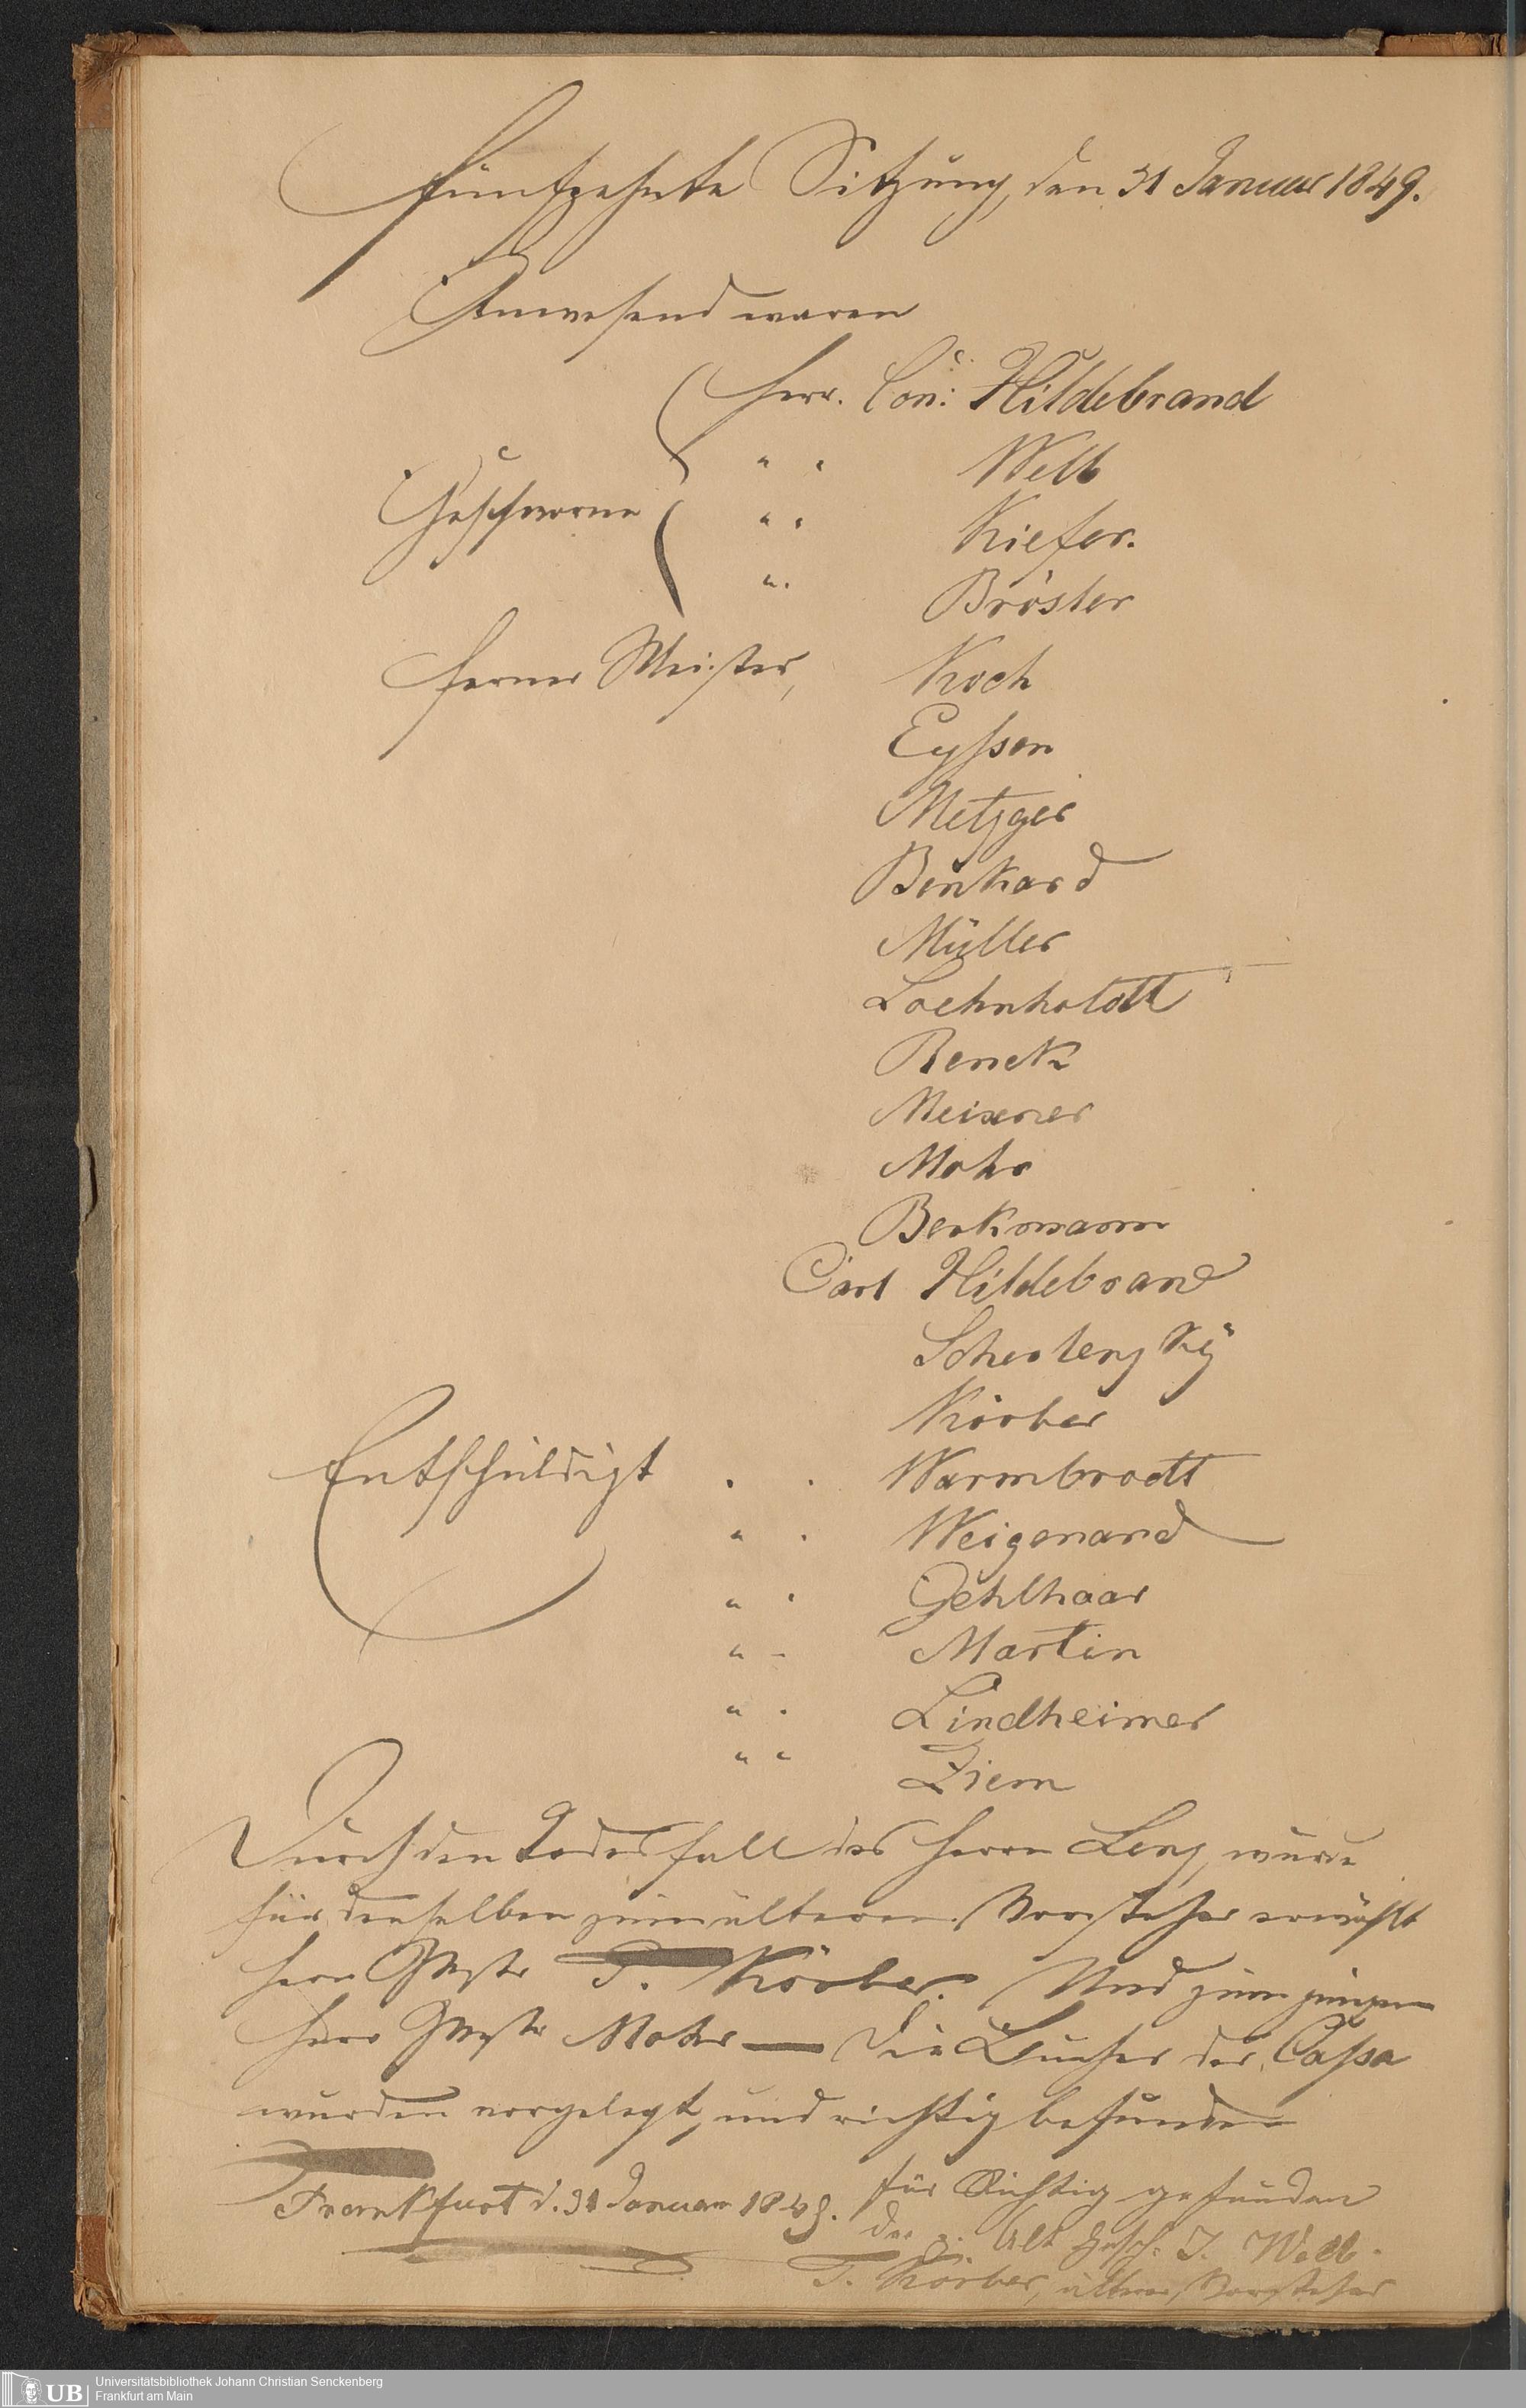 Fünfzehnte Sitzung, den 31 Januar 1849.
Anwesend waren
Herr. Con: Hildebrand
" " Welb
Geschworne " " Kiefer.
" . Bröster
ferner Meister, Koch
Eyssen
Metzger
Benkard
Müller
Loehnholdt
Renck
Meixner
Mohr
Berkmann
Carl Hildebrand
Scherlenzky
Körber
Entschuldigt . . Warmbrodt
" . Weigenand
" . Gehlhaar
" - Martin
" . Lindheimer
" " Ziem
Durch den Todesfall des Herrn Lenz, wurde
für denselben zum älteren Vorsteher erwählt
Herr T. Körber. Und zum jüngern
Herr Mohr — Die Bücher der Cassa
wurden vorgelegt, und richtig befunden
Frankfurt d. 31 Januar 1849.
für Richtig gefunden
der z. Alt Gesch. J. Welb.
T. Körber, älterer Vorsteher
Universitätsbibliothek Johann Christian Senckenberg
UB Frankfurt am Main